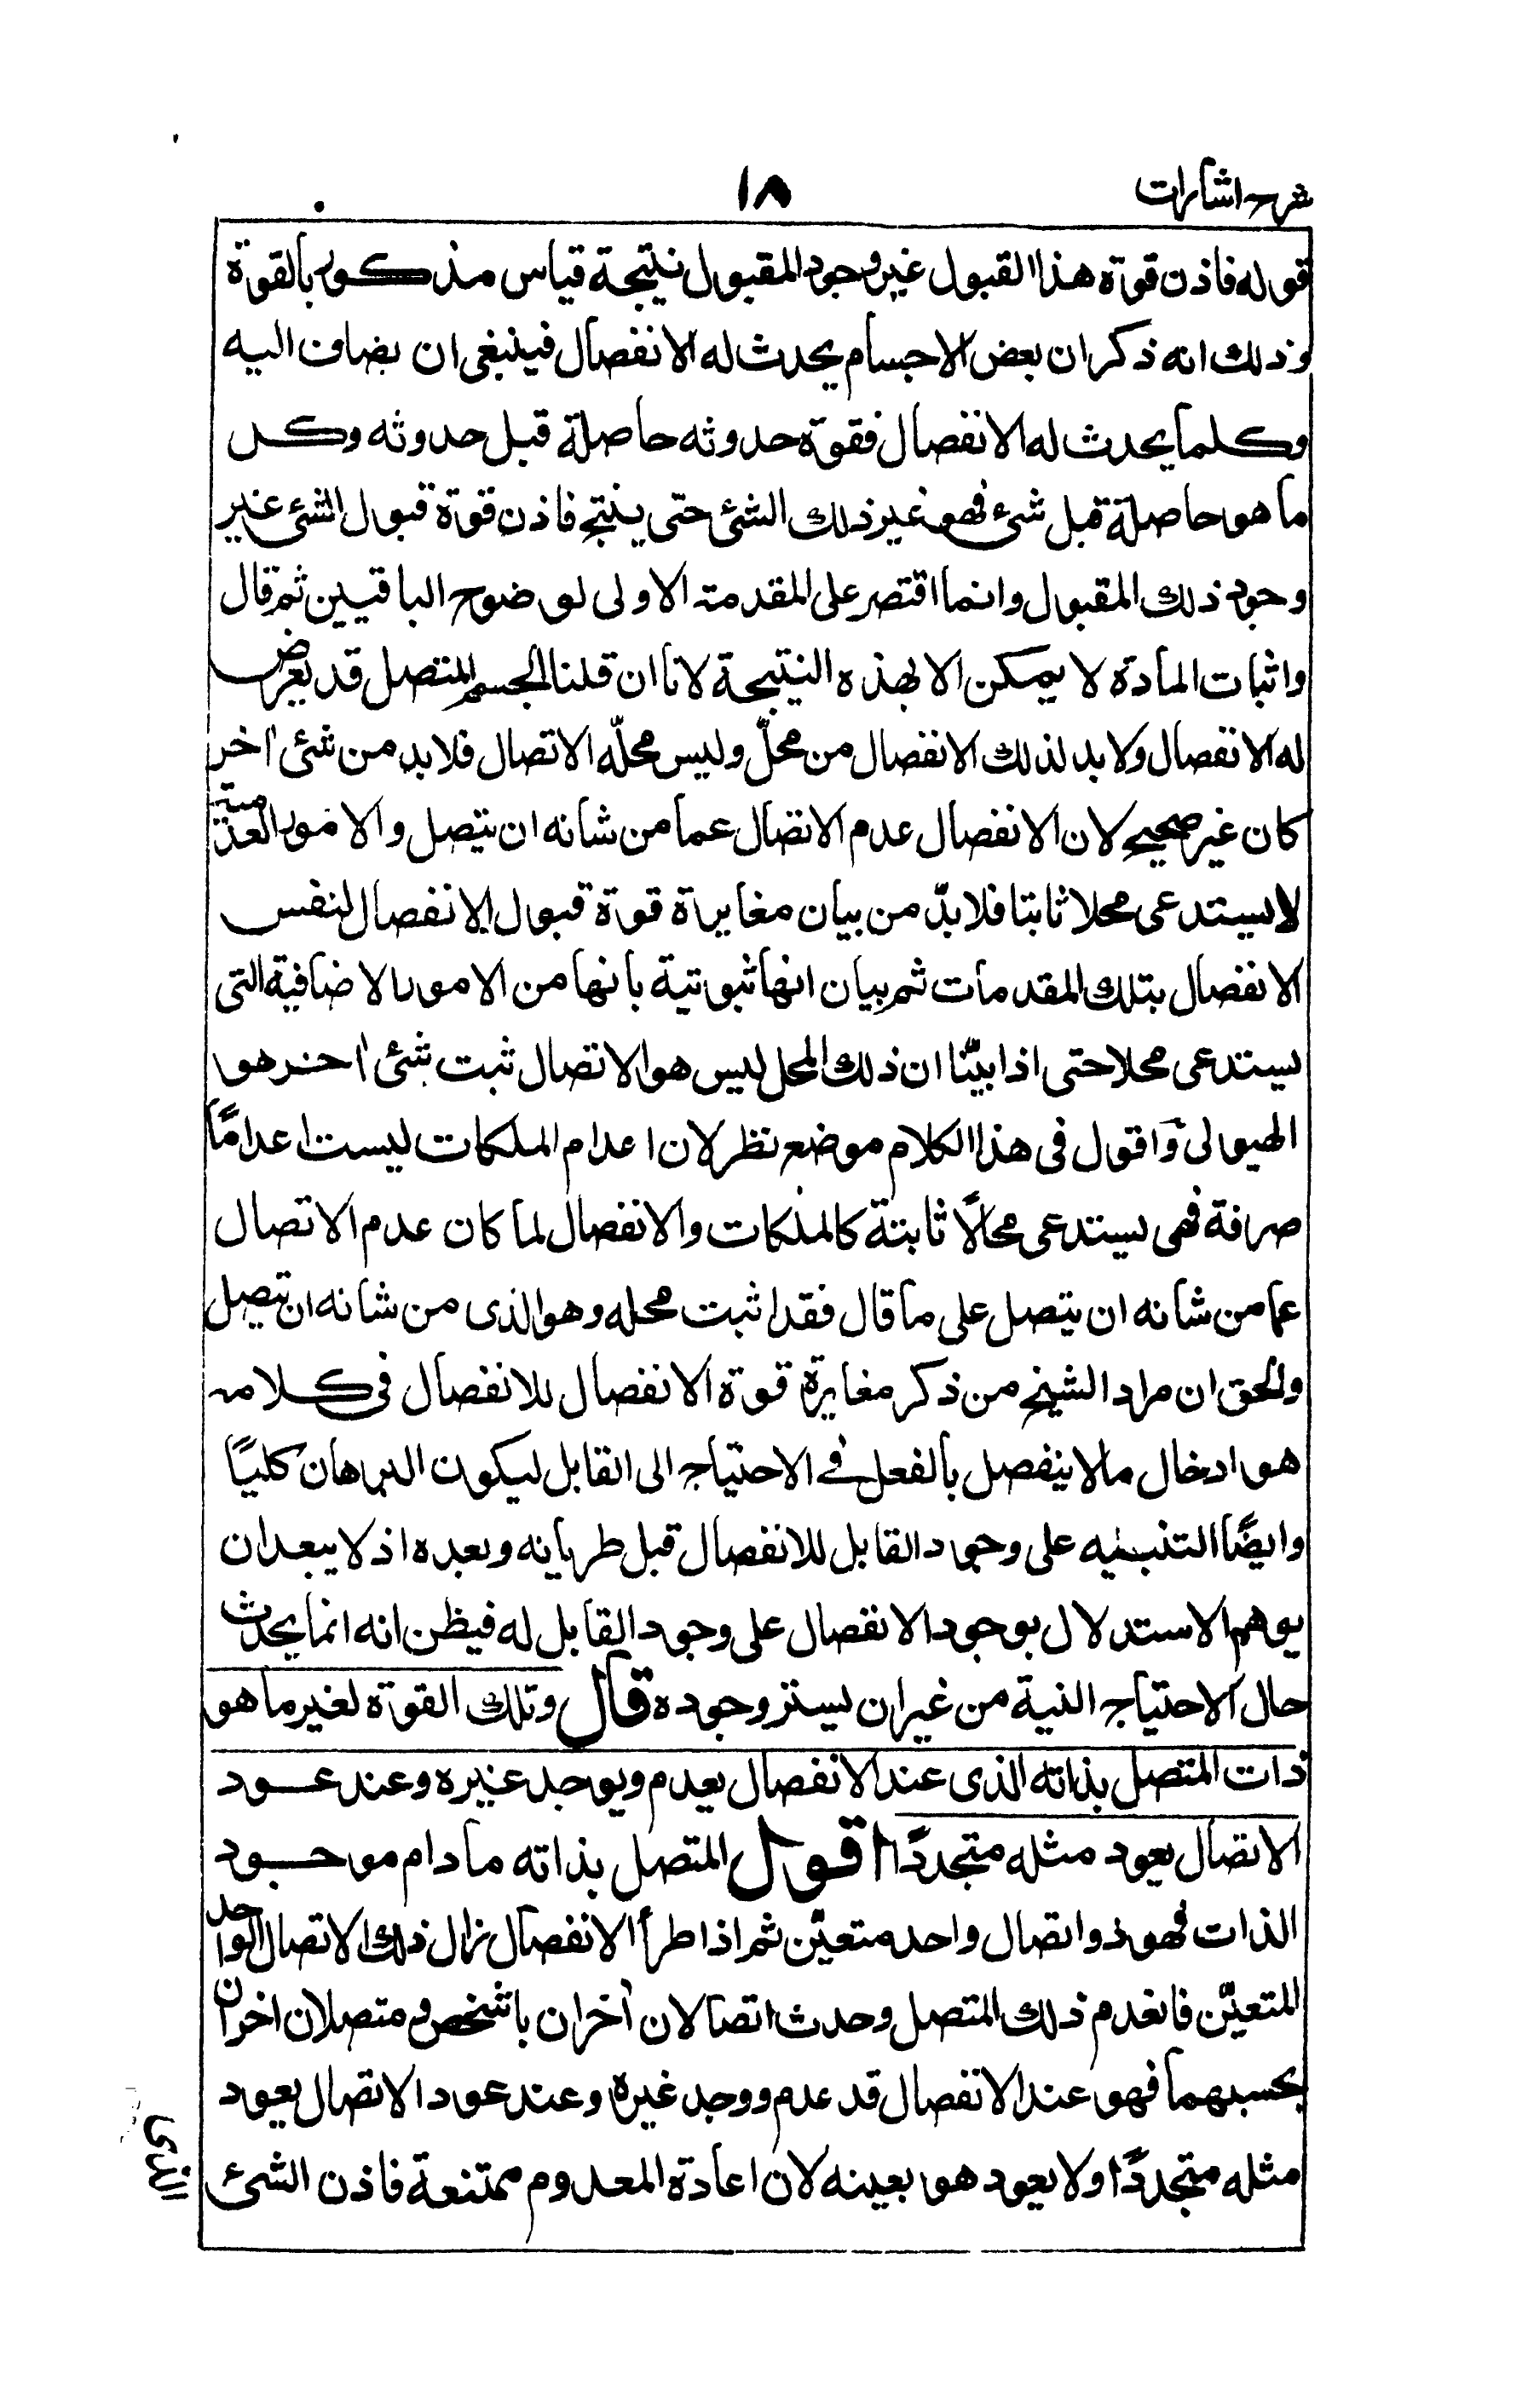 شرح اشارات
١٨
قوله فاذن قوة هذا القبول غير وجود المقبول نتيجة قياس مذكور بالقوة
وذلك انه ذكر ان بعض الاجسام يحدث له الانفصال فينبغى ان يضاف اليه
وكلما يحدث له الانفصال فقوة حدوثه حاصلة قبل حدوثه وكل
ما هو حاصلة قبل شئ فهو غير ذلك الشئ حتى ينتج فاذن قوة قبول الشئ غير
وجود ذلك المقبول وانما اقتصر على المقدمة الاولى لوضوح الباقيين ثم قال
واثبات المادة لا يمكن الا بهذه النتيجة لانا ان قلنا الجسم المتصل قد يعرض
له الانفصال ولا بد لذلك الانفصال من محلّ وليس محلّه الاتصال فلا بد من شئ اخر
كان غير صحيح لان الانفصال عدم الاتصال عما من شانه ان يتصل والامور العدمية
لا يستدعى محلا ثابتا فلا بدّ من بيان مغايرة قوة قبول الانفصال لنفس
الانفصال بتلك المقدمات ثم بيان انها ثبوتية بانها من الامور الاضافية التى
يستدعى محلا حتى اذا بيّنا ان ذلك المحل ليس هو الاتصال ثبت شئ اخر هو
الهيولى واقول فى هذا الكلام موضع نظر لان اعدام الملكات ليست اعدامًا
صرافة فهى يستدعى محالًا ثابتة كالملكات والانفصال لما كان عدم الاتصال
عما من شانه ان يتصل على ما قال فقد اثبت محله وهو الذى من شانه ان يتصل
والحق ان مراد الشيخ من ذكر مغايرة قوة الانفصال للانفصال فى كلامه
هو ادخال ما لا ينفصل بالفعل فى الاحتياج الى القابل ليكون البرهان كليًا
وايضًا التنبيه على وجود القابل للانفصال قبل طريانه وبعده اذ لا يبعد ان
يوهم الاستدلال بوجود الانفصال على وجود القابل له فيظن انه انما يحدث
حال الاحتياج اليه من غير ان يستمر وجوده قال وتلك القوة لغير ما هو
ذات المتصل بذاته الذى عند الانفصال يعدم ويوجد غيره وعند عود
الاتصال يعود مثله متجددًا اقول المتصل بذاته ما دام موجود
الذات فهو ذو اتصال واحد متعيّن ثم اذا طرأ الانفصال زال ذلك الاتصال الواحد
المتعيّن فانعدم ذلك المتصل وحدث اتصالان أخران بالشخص ومتصلان اخران
بحسبهما فهو عند الانفصال قد عدم ووجد غيره وعند عود الاتصال يعود
مثله متجددًا ولا يعود هو بعينه لان اعادة المعدوم ممتنعة فاذن الشئ
الذى